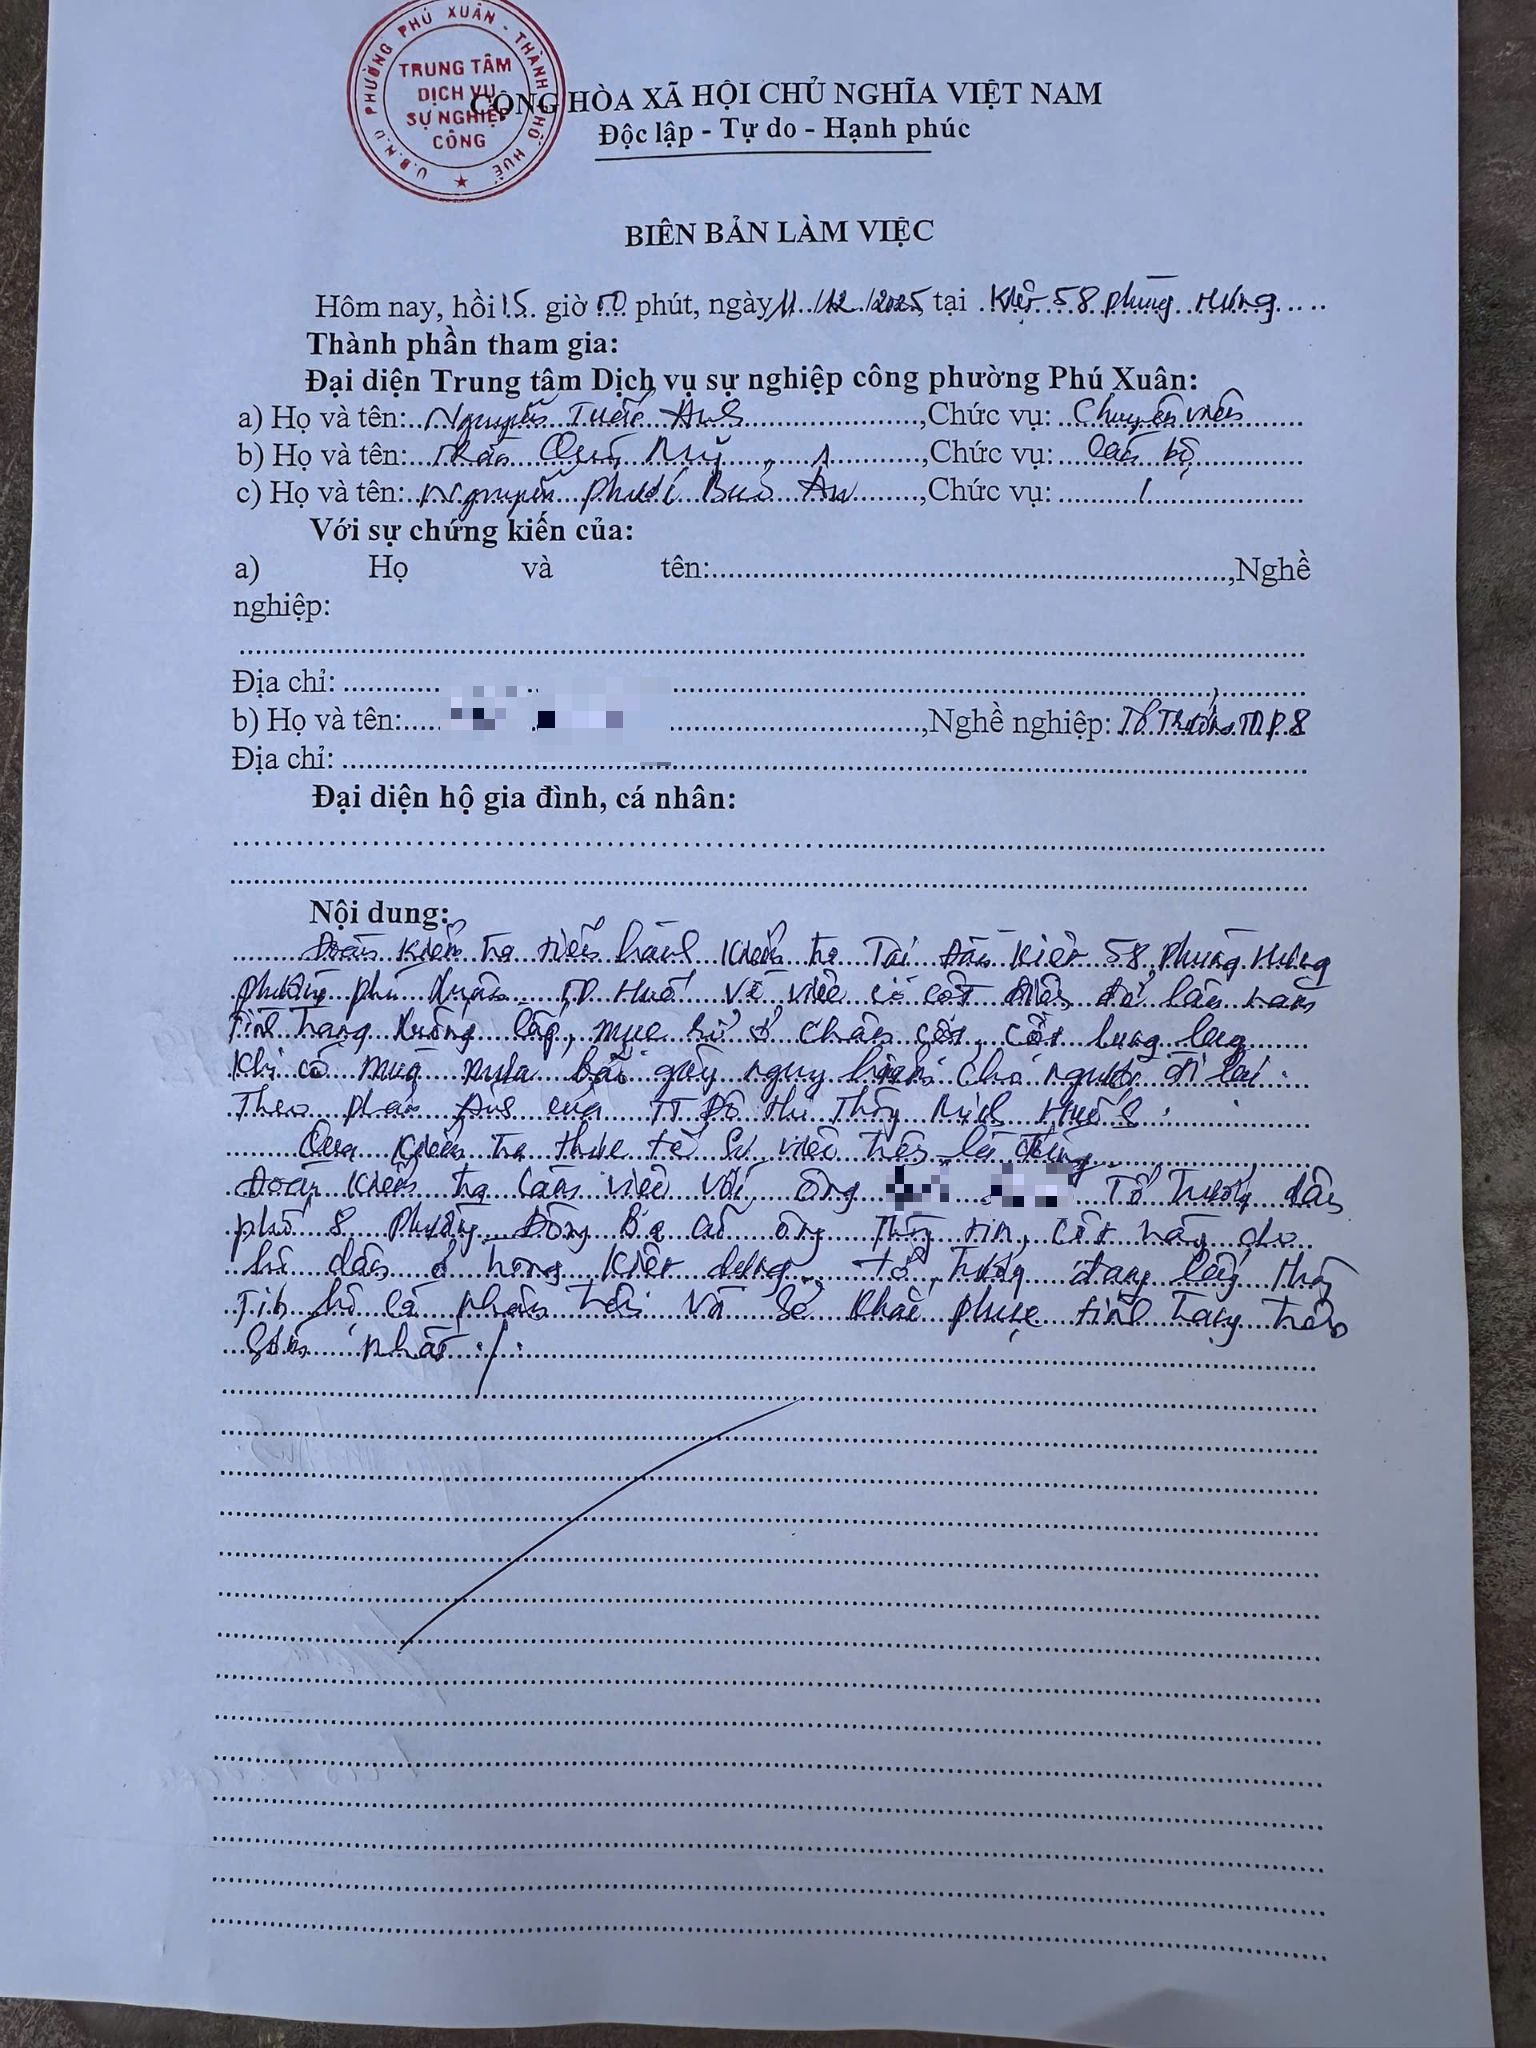 U.B.N.D PHƯỜNG PHÚ XUÂN - THÀNH PHỐ HUẾ
TRUNG TÂM
DỊCH VỤ
SỰ NGHIỆP
CÔNG
CỘNG HÒA XÃ HỘI CHỦ NGHĨA VIỆT NAM
Độc lập - Tự do - Hạnh phúc
BIÊN BẢN LÀM VIỆC
Hôm nay, hồi 15 giờ 00 phút, ngày 11/12/2025, tại Kiệt 58 Phùng Hưng
Thành phần tham gia:
Đại diện Trung tâm Dịch vụ sự nghiệp công phường Phú Xuân:
a) Họ và tên: Nguyễn Tuấn Anh, Chức vụ: Chuyên viên
b) Họ và tên: Quý, Chức vụ: Cán bộ
c) Họ và tên: Nguyễn Phước Bửu An, Chức vụ:
Với sự chứng kiến của:
a) Họ và tên:, Nghề
nghiệp:
Địa chỉ:
b) Họ và tên:, Nghề nghiệp: Tổ Trưởng TDP 8
Địa chỉ:
Đại diện hộ gia đình, cá nhân:
Nội dung:
Đoàn kiểm tra tiến hành kiểm tra Tại Kiệt 58 Phùng Hưng
phường Phú Xuân, TP Huế về việc có cột điện đã lâu năm
tình trạng xuống cấp, mục rữ ở chân cột, cột lung lay
khi có mùa mưa bão gây nguy hiểm cho người đi lại.
Theo phản ánh của TT Đô thị Thông Minh Huế
Qua kiểm tra thực tế sự việc trên là đúng
Đoàn kiểm tra làm việc với ông Tổ trưởng dân
phố 8 Phường Đông Ba cũ ông thông tin, cột này do
hộ dân ở trong kiệt dựng, tổ trưởng đang lấy thông
tin hộ cá nhân trên và sẽ khắc phục tình trạng trên
sớm nhất ./.